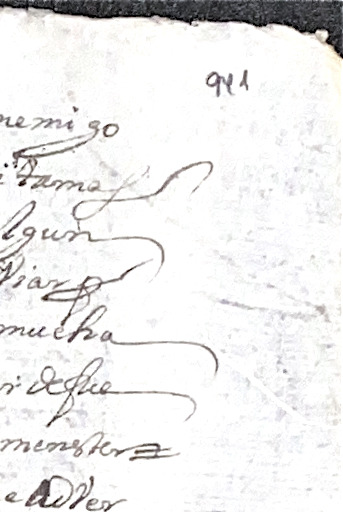 941
nemigo
i fama
lgun
viar
mucha
ir desue
menester
e adver